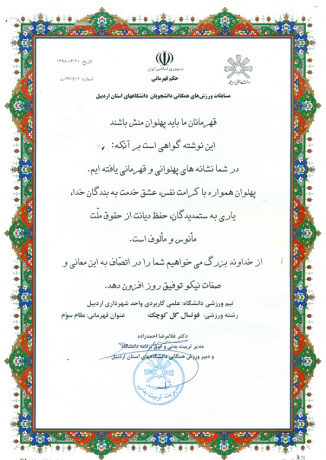 جمهوری اسلامی ایران
حکم قهرمانی
تاریخ: ۱۳۹۸/۰۳/۲۰
شماره:
مسابقات ورزش‌های همگانی دانشجویان دانشگاههای استان اردبیل
قهرمانان ما باید پهلوان منش باشند
این نوشته گواهی است بر آنکه:
در شما نشانه های پهلوانی و قهرمانی یافته ایم.
پهلوان همواره با کرامت نفس، عشق خدمت به بندگان خدا،
یاری به ستمدیدگان، حفظ دیانت از حقوق ملّت
مأنوس و مألوف است.
از خداوند بزرگ می خواهیم شما را در اتصّاف به این معانی و
صفات نیکو توفیق روز افزون دهد.
تیم ورزشی دانشگاه: علمی کاربردی واحد شهرداری اردبیل
رشته ورزشی: فوتسال گل کوچک عنوان قهرمانی: مقام سوّم
دکتر غلامرضا احمدزاده
مدیر تربیت بدنی و فوق برنامه دانشگاه
و دبیر ورزش همگانی دانشگاههای استان اردبیل